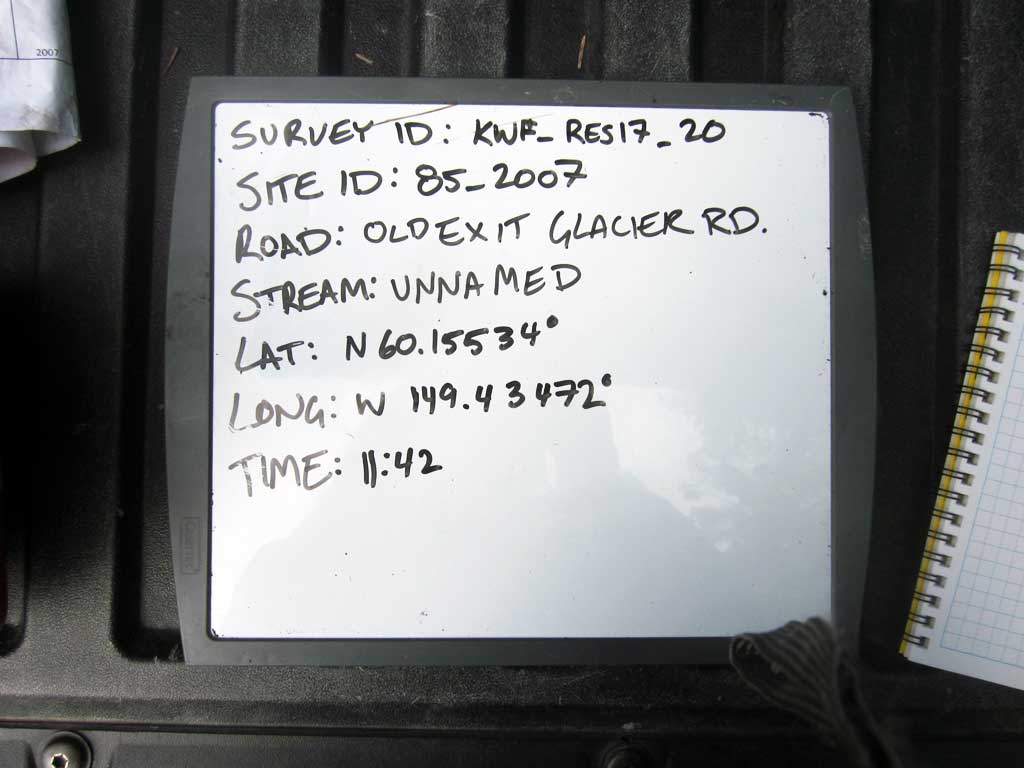 2007
SURVEY ID: KWF_RES17_20
SITE ID: 85_2007
ROAD: OLD EXIT GLACIER RD.
STREAM: UNNAMED
LAT: N 60.15534°
LONG: W 149.43472°
TIME: 11:42